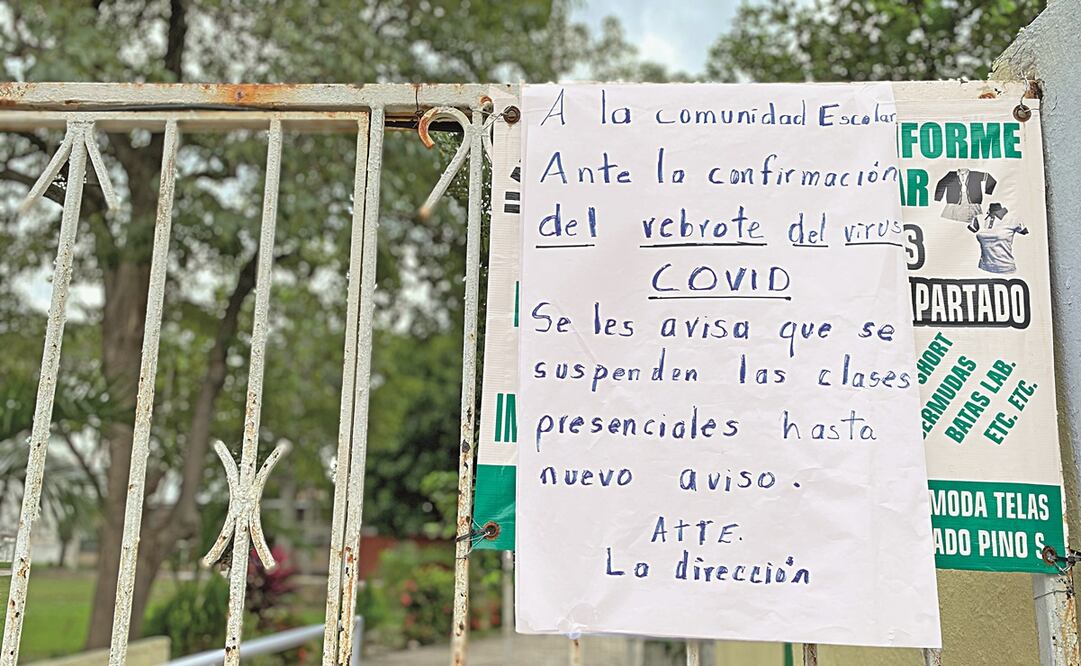 A la comunidad Escolar
Ante la confirmación
del rebrote del virus
COVID
Se les avisa que se
suspenden las clases
presenciales hasta
nuevo aviso.
ATTE.
La dirección
FORME
AR
S
PARTADO
SHORT
ERMUDAS
BATAS LAB.
ETC. ETC.
IN
MODA TELAS
ADO PINO S